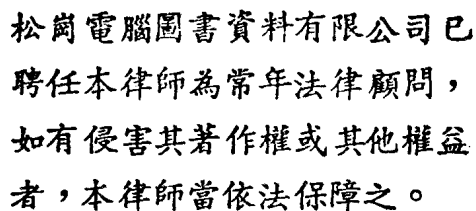 松崗電腦圖書資料有限公司已
聘任本律師為常年法律顧問，
如有侵害其著作權或其他權益
者，本律師當依法保障之。